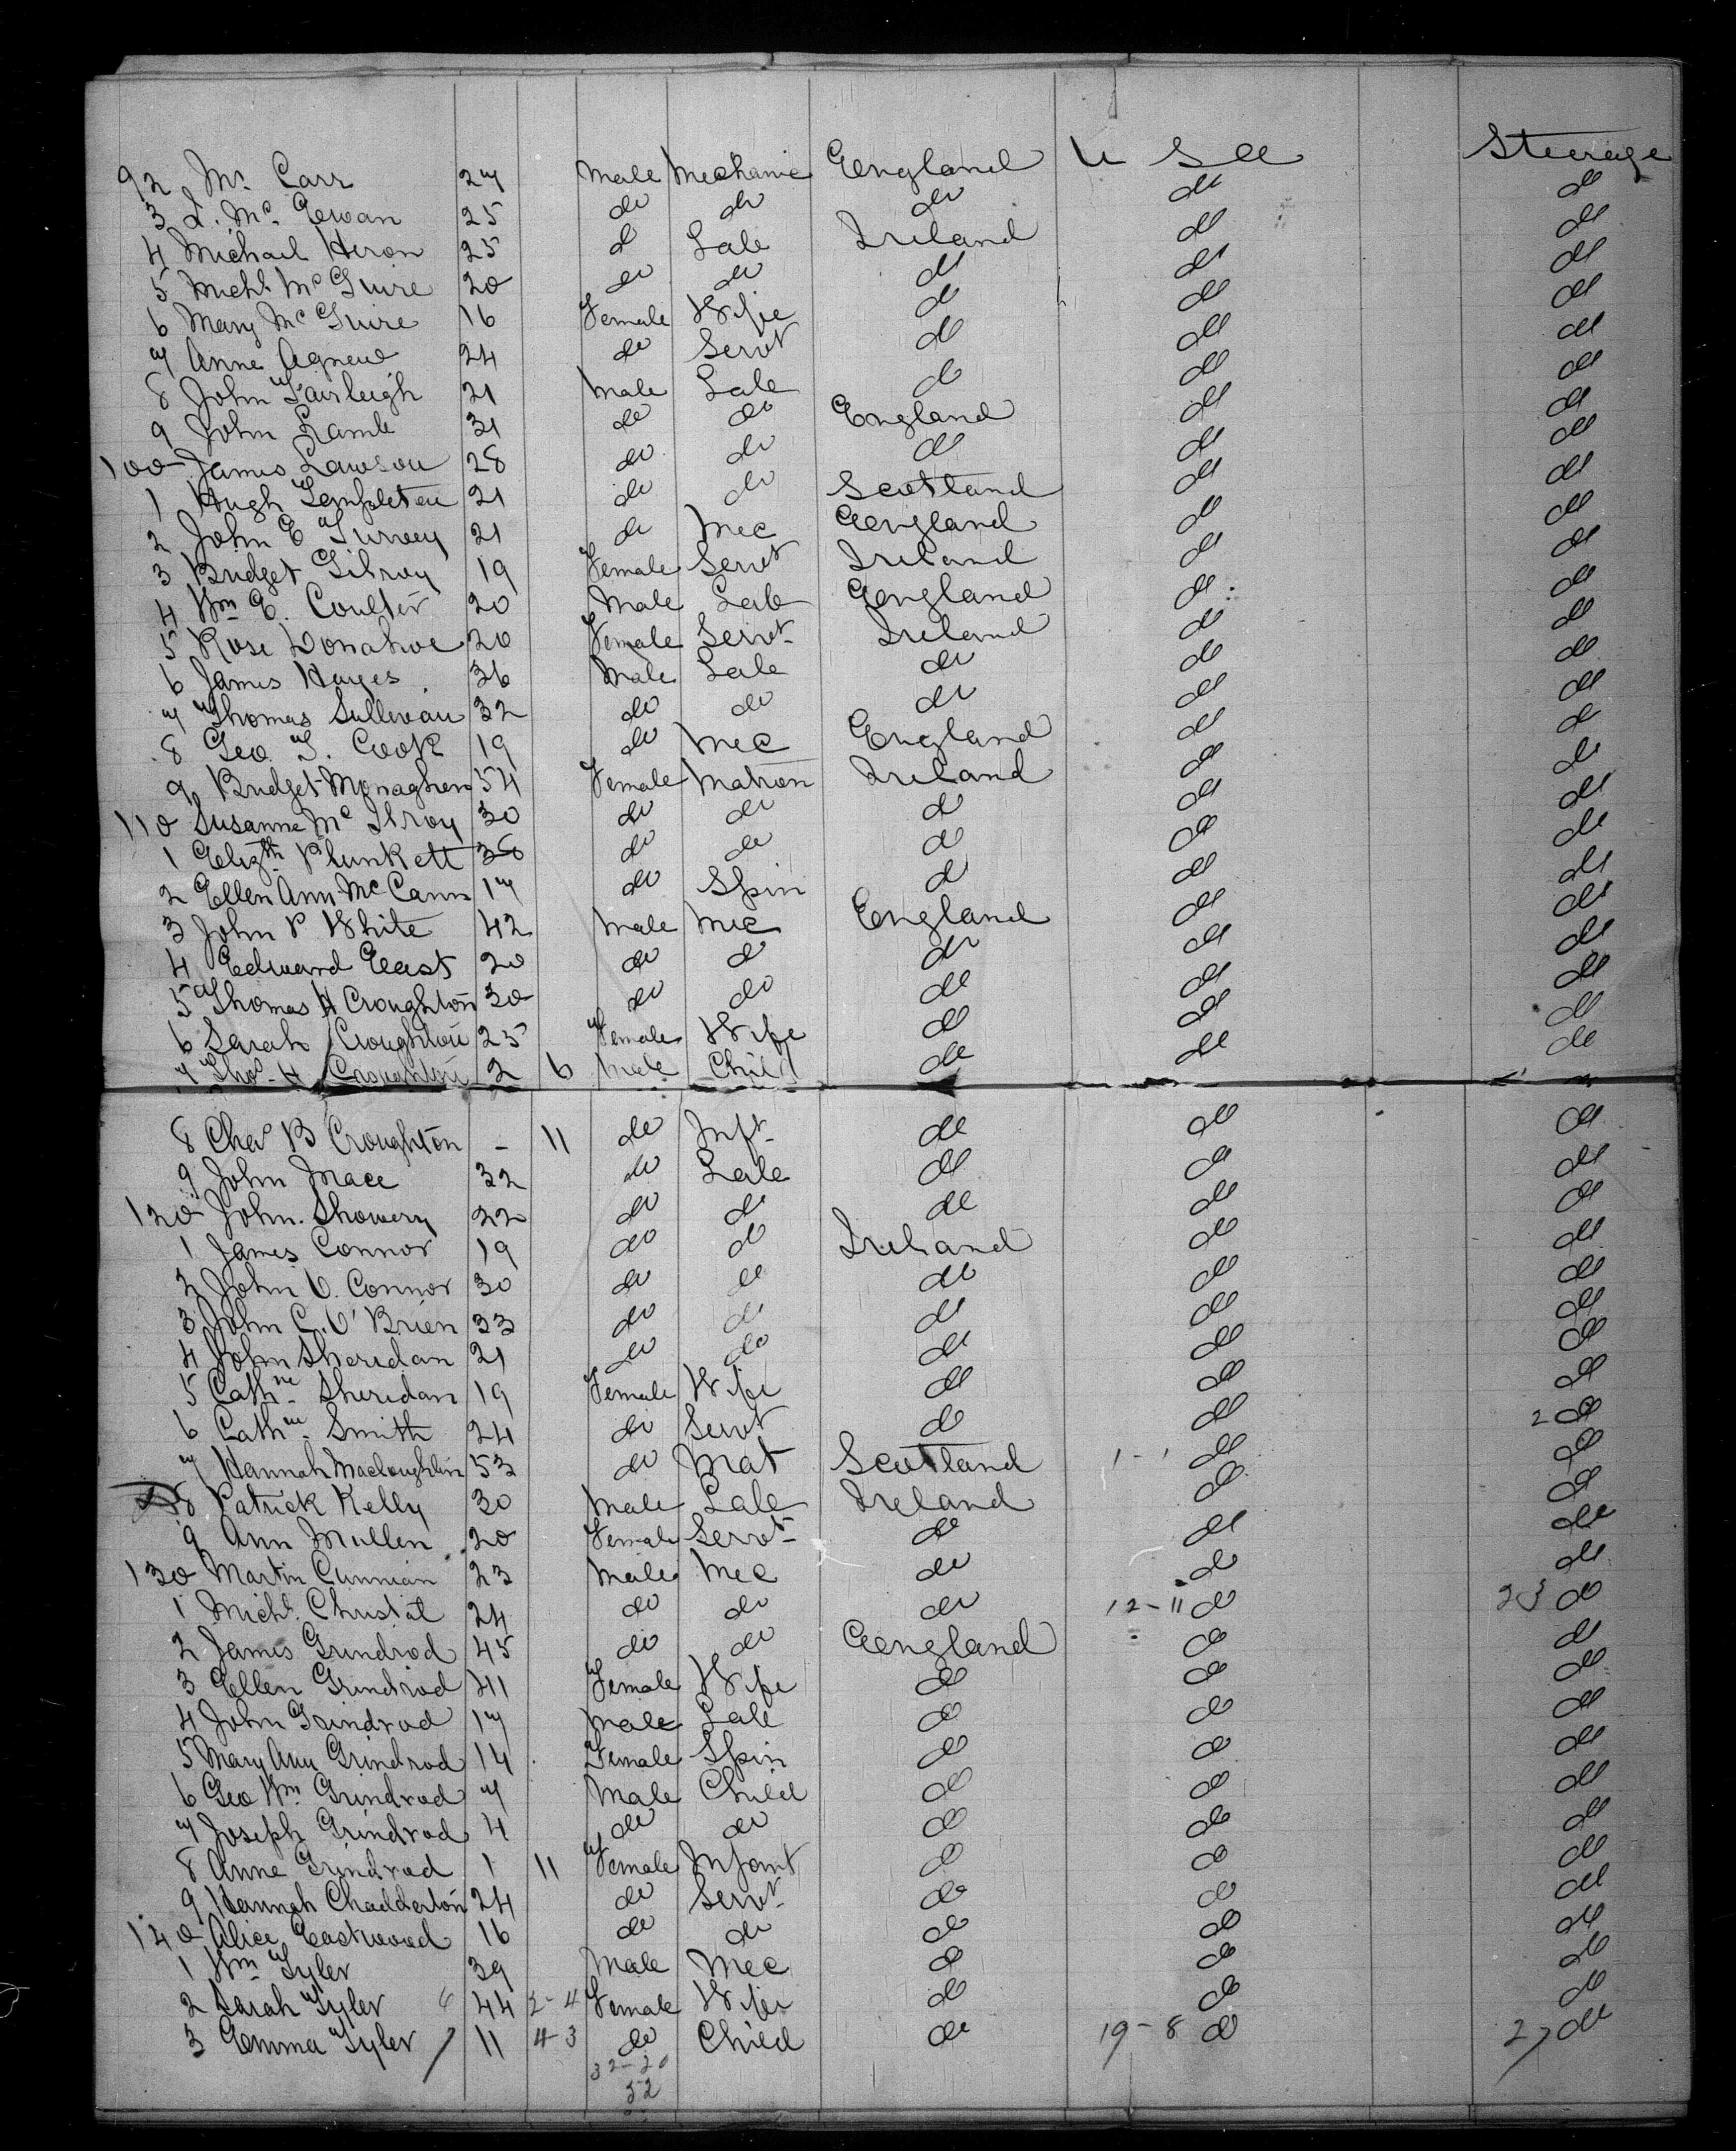 92 Mr. Carr 27 Male Mechanic England U S A Steerage
3 L. Mc. Ewan 25 do do do do do
4 Michael Heron 25 d Lab Ireland do do
5 Michl. McGuire 20 do do do do do
6 Mary McGuire 16 Female Wife d do do
7 Anne Agnew 24 do Servt d do do
8 John Fairleigh 21 Male Lab d do do
9 John Lamb 31 do do England do do
100 James Lawson 28 do do do do do
1 Hugh Templeton 21 do do Scotland do do
2 John E Turvey 21 do Mec England do do
3 Bridget Gilroy 19 Female Servt Ireland do do
4 Wm E. Coulter 20 Male Lab England do do
5 Rose Donahoe 20 Female Servt Ireland do do
6 James Hayes 36 Male Lab do do do
7 Thomas Sullivan 32 do do do do do
8 Geo. T. Cook 19 do Mec England do do
9 Bridget Monaghan 54 Female Matron Ireland do do
110 Susanne McIlroy 30 do do d do do
1 Elizth. Plunkett 36 do do d do do
2 Ellen Ann McCann 17 do Spin d do do
3 John P White 42 Male Mec England do do
4 Edward East 20 do d do do do
5 Thomas H Croughton 30 do do do do do
6 Sarah Croughton 25 Female Wife do do do
7 Thos. H Croughton 2 6 Male Child do do do
8 Chas B Croughton - 11 do Inft do do do
9 John Mace 32 do Lab do do do
120 John Showery 22 do d do do do
1 James Connor 19 do do Ireland do do
2 John O. Connor 30 do do do do do
3 John C. O'Brien 33 do do do do do
4 John Sheridan 21 do do do do do
5 Cathne. Sheridan 19 Female Wife do do do
6 Cathne. Smith 24 do Servt do do 2 do
7 Hannah Macloughlin 53 do Mat Scotland 1-1 do do
8 Patrick Kelly 30 Male Lab Ireland do do
9 Ann Mullen 20 Female Servt do do do
130 Martin Cunnian 23 Male Mec do do do
1 Michl. Christal 24 do do do 12-11 do 23 do
2 James Grindrod 45 do do England do do
3 Ellen Grindrod 41 Female Wife do do do
4 John Grindrod 17 Male Lab do do do
5 Mary Ann Grindrod 14 Female Spin do do do
6 Geo Wm. Grindrod 7 Male Child do do do
7 Joseph Grindrod 4 do do do do do
8 Anne Grindrod 1 11 Female Infant do do do
9 Hannah Chadderton 24 do Servt do do do
140 Alice Eastwood 16 do do do do do
1 Wm Tyler 39 Male Mec do do do
2 Sarah Tyler 6 44 2-4 Female Wife do do do
3 Emma Tyler 7 11 4-3 do Child do 19-8 do 27 do
32-20
52